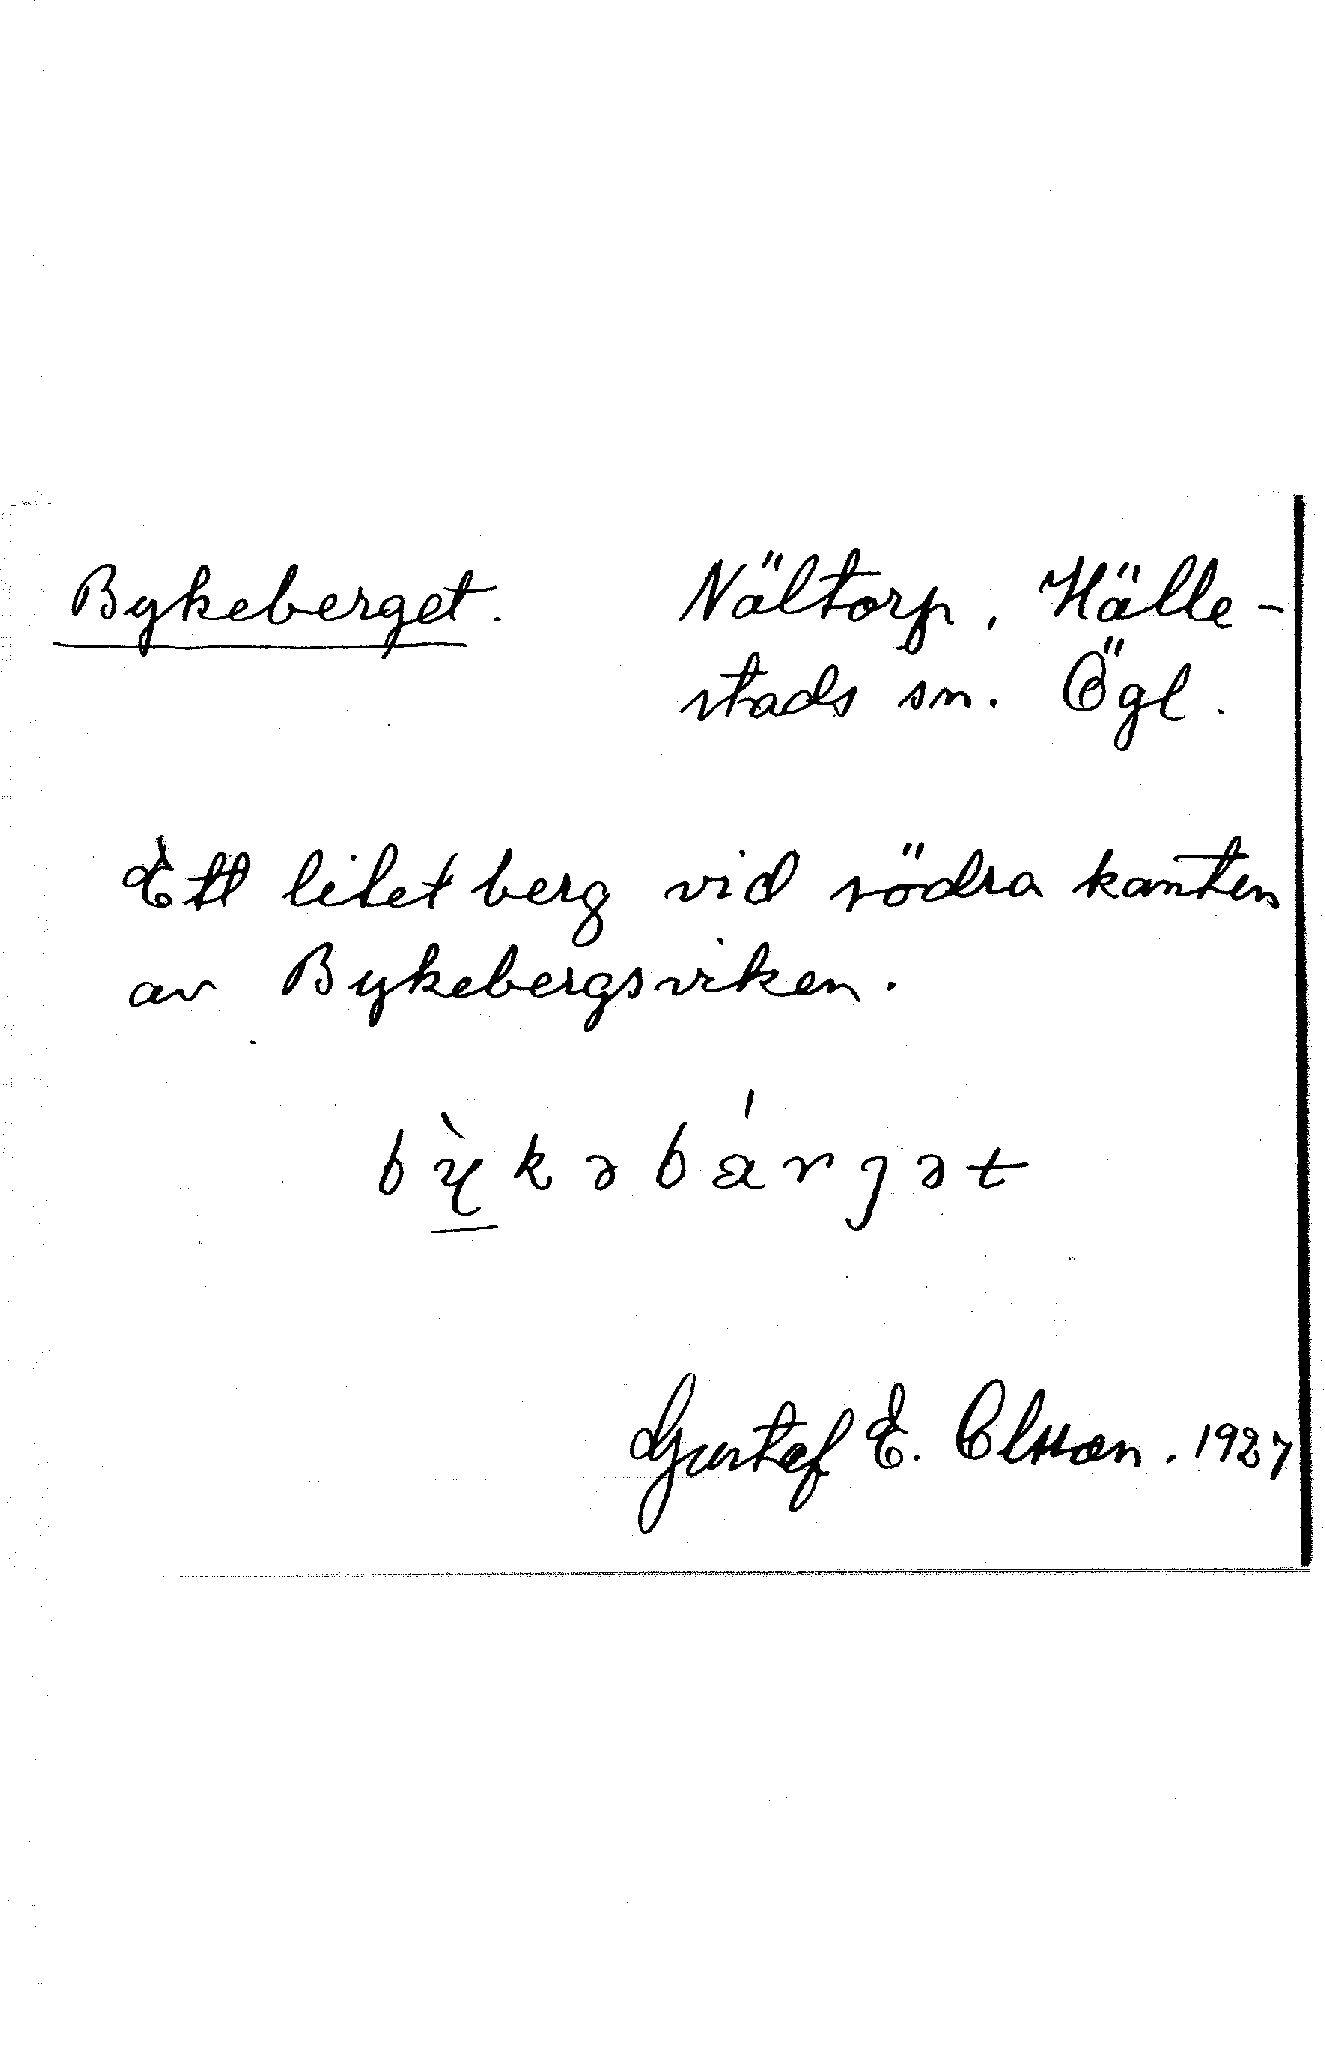 Bykeberget. Nältorp, Hälle-
stads sn. Ögl.
Ett litet berg vid södra kanten
av Bykebergsviken.
bỳkəbá̈rjət
Gustaf E. Olsson. 1927